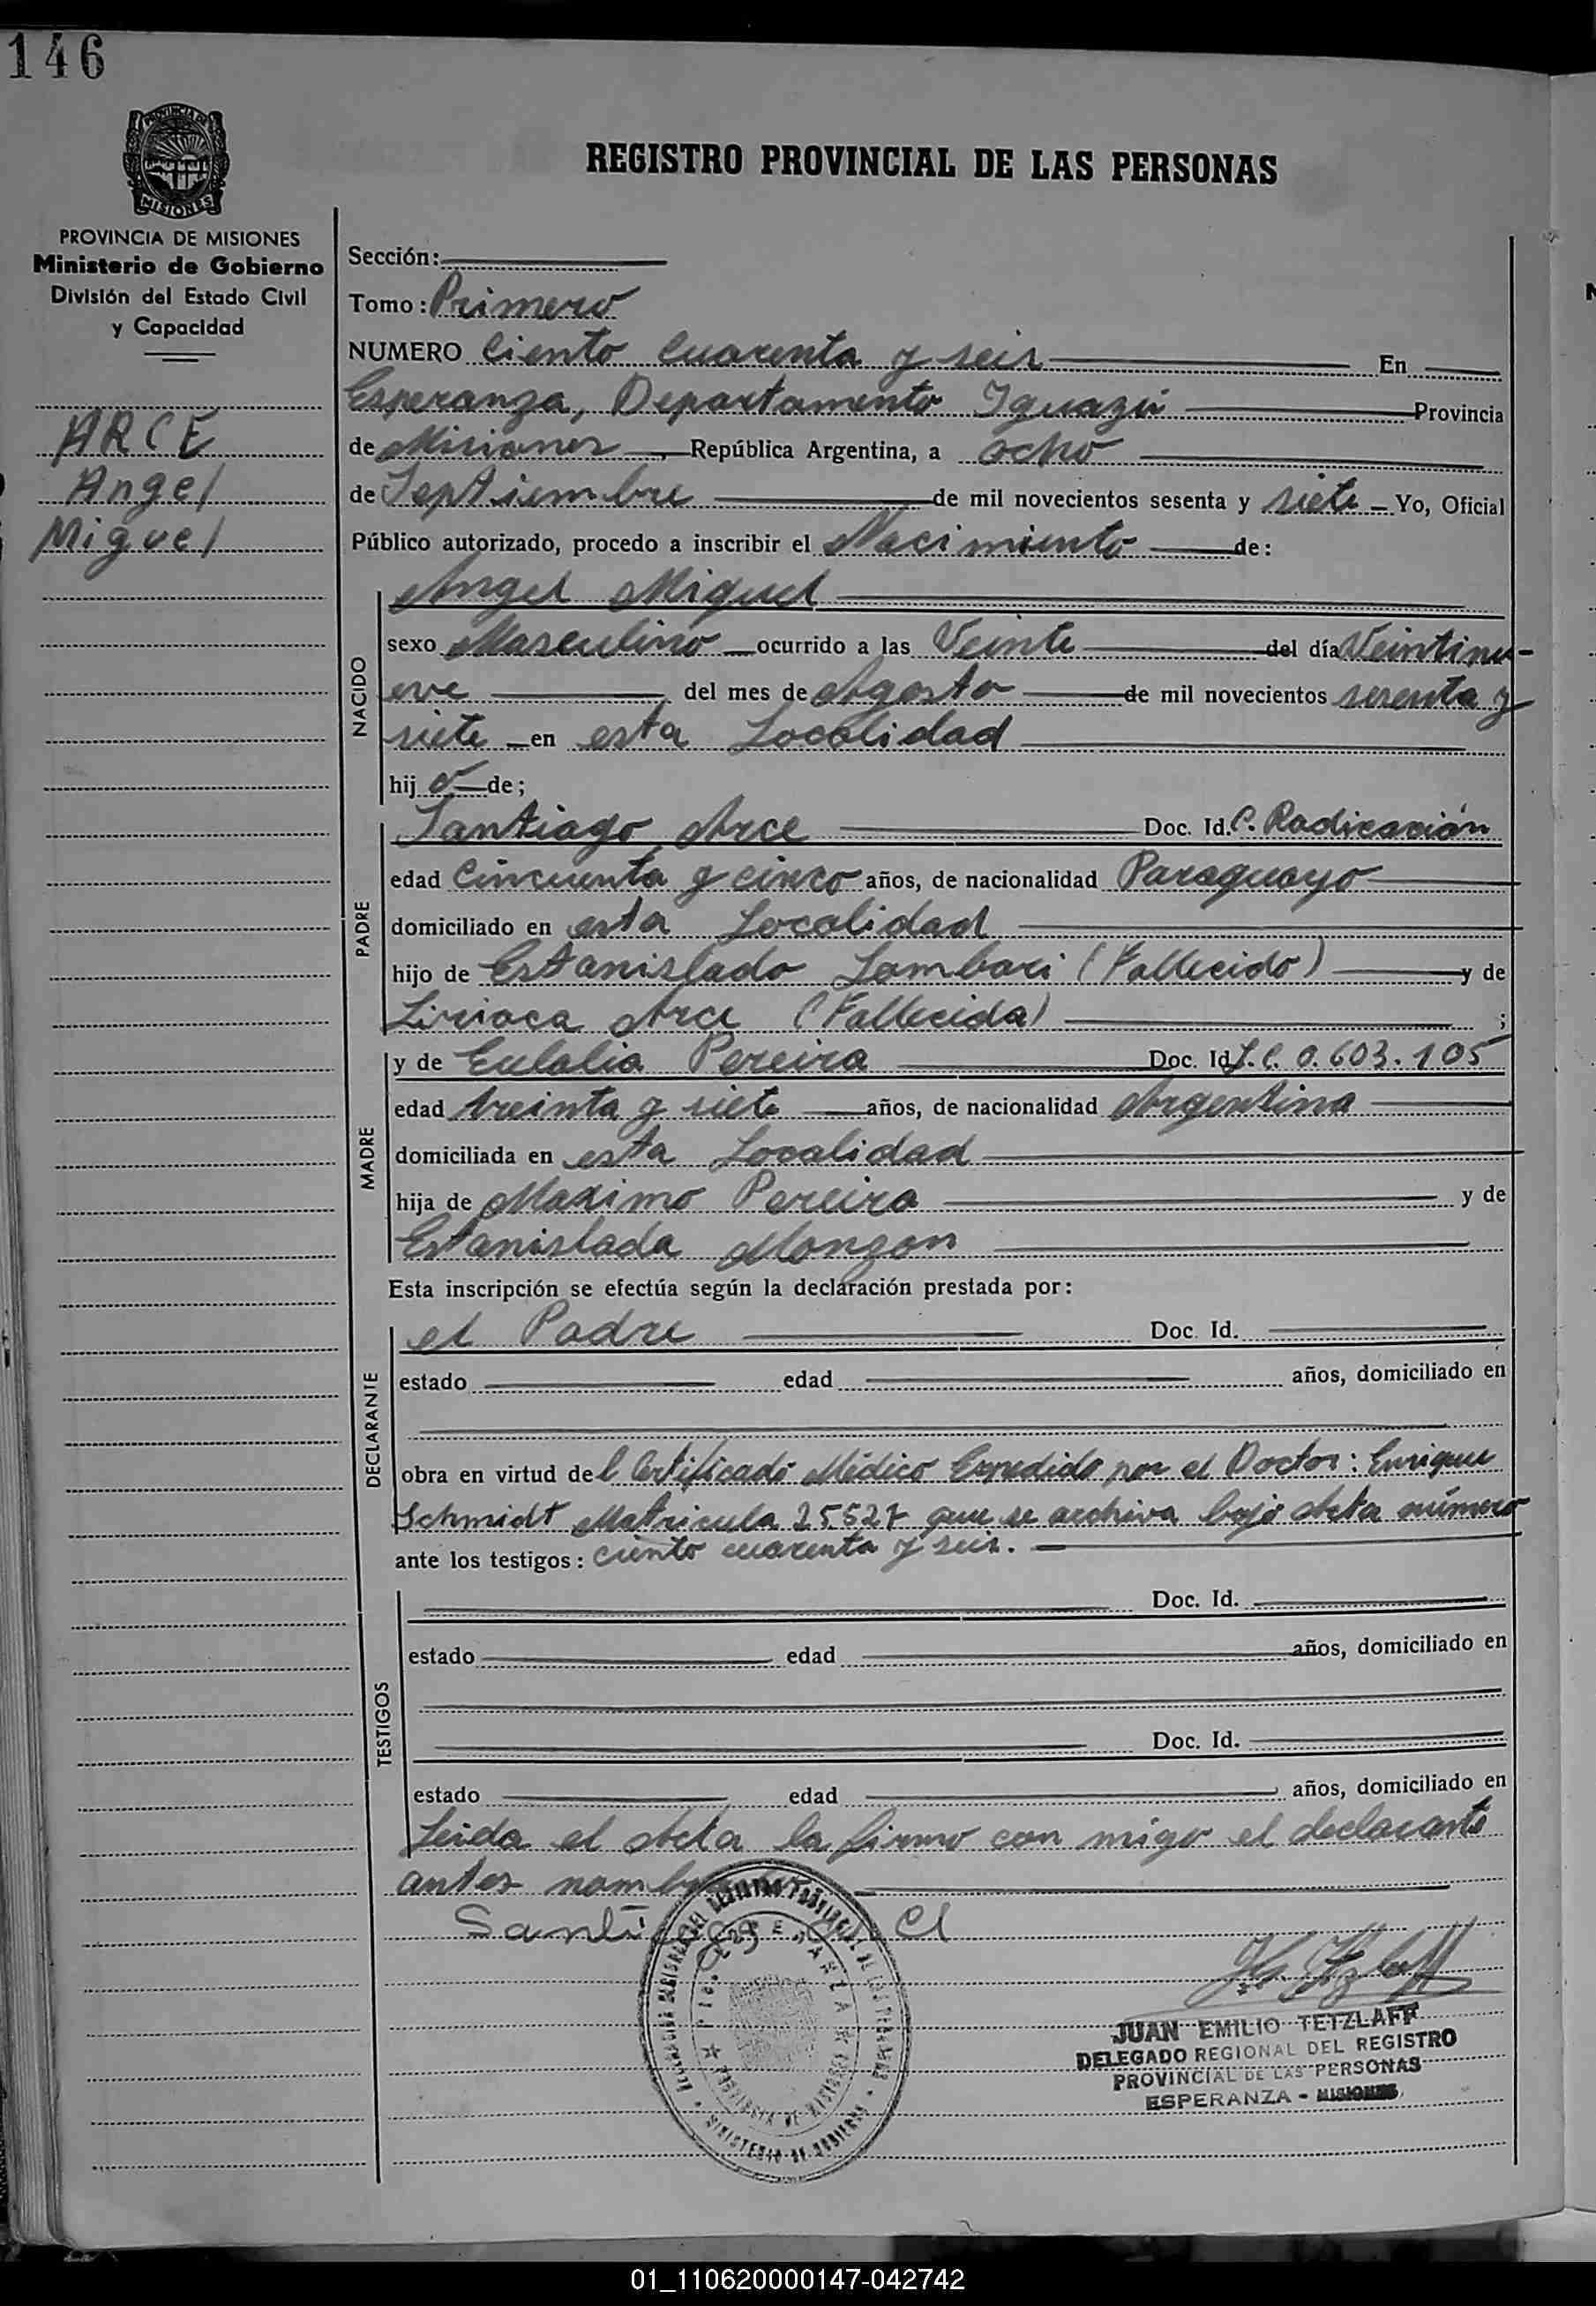 146
PROVINCIA DE
MISIONES
REGISTRO PROVINCIAL DE LAS PERSONAS
PROVINCIA DE MISIONES
Ministerio de Gobierno
División del Estado Civil
y Capacidad
ARCE
Angel
Miguel
Sección:
Tomo: Primero
NUMERO Ciento Cuarenta y seis En
Esperanza, Departamento Iguazú Provincia
de Misiones, República Argentina, a ocho
de Septiembre de mil novecientos sesenta y siete Yo, Oficial
Público autorizado, procedo a inscribir el Nacimiento de:
NACIDO
Angel Miguel
sexo Masculino ocurrido a las Veinte del día Veintinu-
eve del mes de Agosto de mil novecientos sesenta y
siete en esta Localidad
hij o de;
PADRE
Santiago Arce Doc. Id. C. Radicación
edad Cincuenta y cinco años, de nacionalidad Paraguayo
domiciliado en esta Localidad
hijo de Estanislado Lambari (Fallecido) y de
Liriaca Arce (Fallecida) ;
MADRE
y de Eulalia Pereira Doc. Id L.C. 0.603.105
edad treinta y siete años, de nacionalidad Argentina
domiciliada en esta Localidad
hija de Maximo Pereira y de
Estanislada Monzon
Esta inscripción se efectúa según la declaración prestada por:
DECLARANTE
el Padre Doc. Id.
estado edad años, domiciliado en
obra en virtud de l Certificado Médico Expedido por el Doctor: Enrique
Schmidt Matricula 25527 que se archiva bajo Acta número
ante los testigos: ciento cuarenta y seis.
TESTIGOS
Doc. Id.
estado edad años, domiciliado en
Doc. Id.
estado edad años, domiciliado en
Leida el Acta la firmo con migo el declarante
antes
Santiago
JUAN EMILIO TETZLAFF
DELEGADO REGIONAL DEL REGISTRO
PROVINCIAL DE LAS PERSONAS
ESPERANZA - MISIONES
01_110620000147-042742